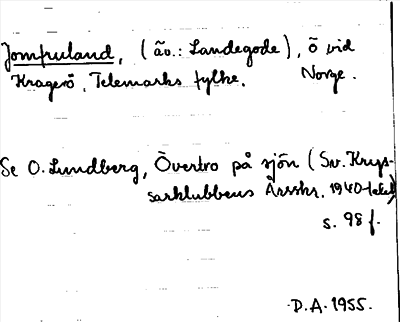 Jomfruland, (äv.: Landegode), ö vid
Kragerö, Telemarks fylke. Norge.
Se O. Lundberg, Övertro på sjön (Sv. Krys-
sarklubbens Årsskr. 1940-talet)
s. 98 f.
D.A. 1955.